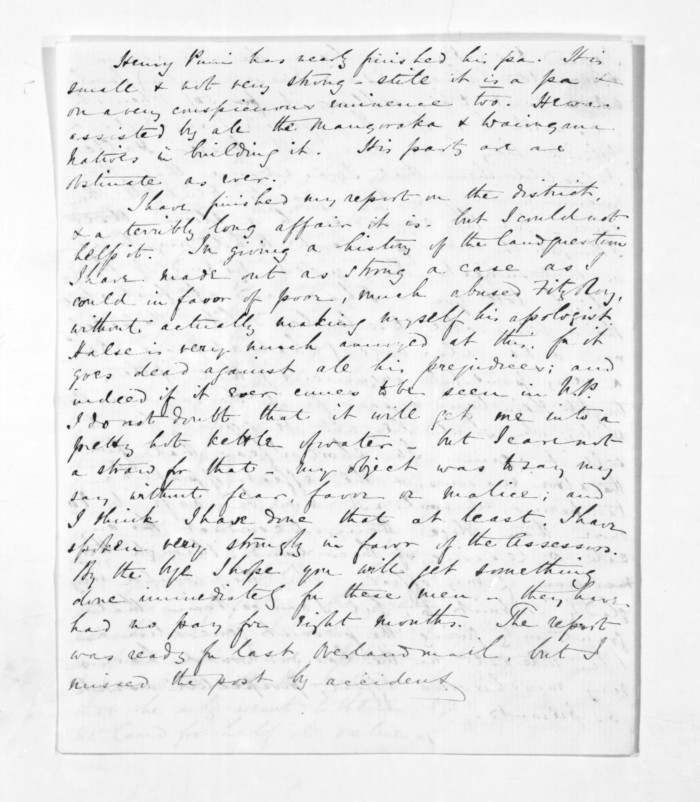 Henry Puni has nearly finished his pa. It is
small & not very strong - still it is a pa &
on a very conspicuous eminence too. He was
assisted by all the Mangoraka & Waiongana
natives in building it. His party are as
obstinate as ever.
I have finished my report on the district,
& a terribly long affair it is - but I could not
help it. In giving a history of the land question
I have made out as strong a case as I
could in favor of poor, much abused FitzRoy,
without actually making myself his apologist
Halse is very much annoyed at this, for it
goes dead against all his prejudices; and
indeed if it ever comes to be seen in N.P.
I do not doubt that it will get me into a
pretty hot kettle of water - but I care not
a straw for that - my object was to say my
say without fear, favor or malice; and
I think I have done that at least. I have
spoken very strongly in favor of the Assessors.
By the bye I hope you will get something
done immediately for these men - they have
had no pay for eight months. The report
was ready for last overland mail, but I
missed the post by accident